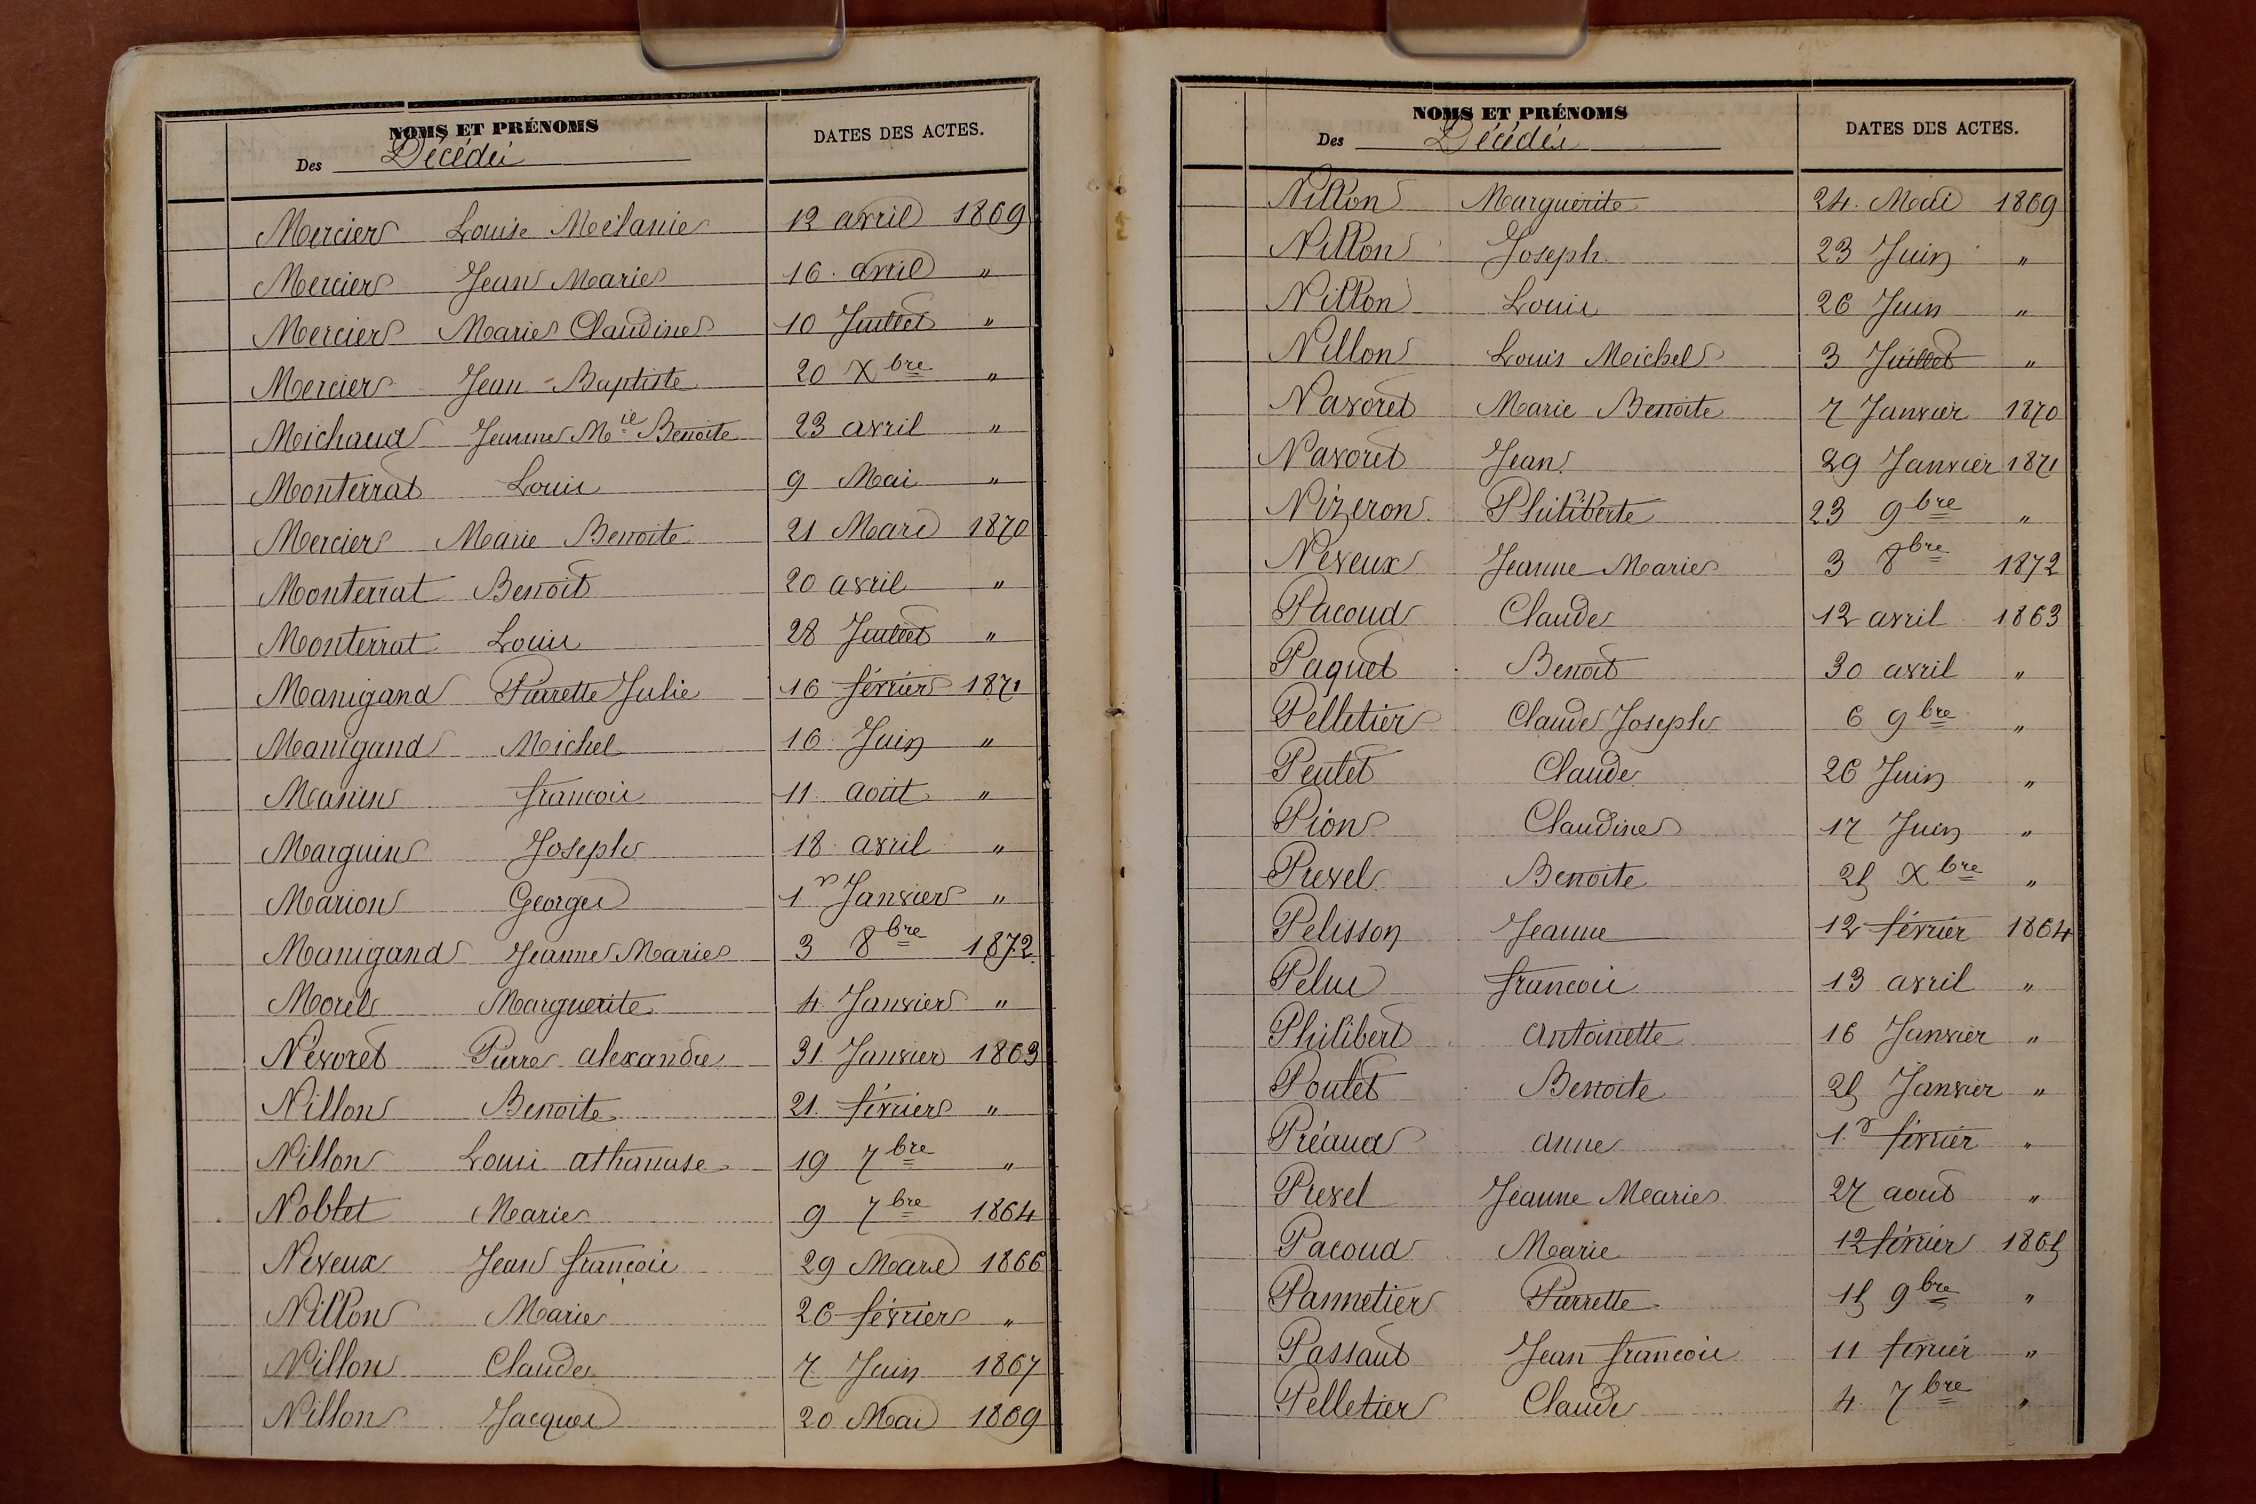 NOMS ET PRÉNOMS
Des Décédés
DATES DES ACTES.
Mercier Louise Mélanie 12 avril 1869
Mercier Jean Marie 16 avril "
Mercier Marie Claudine 10 Juillet "
Mercier Jean-Baptiste 20 Xbre "
Michaud Jeanne Mie Benoite 23 avril "
Monterrat Louis 9 Mai "
Mercier Marie Benoite 21 Mars 1870
Monterrat Benoit 20 avril "
Monterrat Louis 28 Juillet "
Manigand Pierrette Julie 16 février 1871
Manigand Michel 16 Juin "
Manin francois 11 aout "
Marguin Joseph 18 avril "
Marion Georges 1r Janvier "
Manigand Jeanne Marie 3 8bre 1872
Morel Marguerite 4 Janvier "
Névoret Pierre alexandre 31 Janvier 1863
Nillon Benoite 21 février "
Nillon Louis athanase 19 7bre "
Noblet Marie 9 7bre 1864
Neveux Jean françois 29 Mars 1866
Nillon Marie 26 février "
Nillon Claude 7 Juin 1867
Nillon Jacques 20 Mai 1869
NOMS ET PRÉNOMS
Des Décédés
DATES DES ACTES.
Nillon Marguerite 24 Mai 1869
Nillon Joseph 23 Juin "
Nillon Louis 26 Juin "
Nillon Louis Michel 3 Juillet "
Navoret Marie Benoite 7 Janvier 1870
Navoret Jean 29 Janvier 1871
Nizeron Philiberte 23 9bre "
Neveux Jeanne Marie 3 8bre 1872
Pacoud Claude 12 avril 1863
Paquet Benoit 30 avril "
Pelletier Claude Joseph 6 9bre "
Peulet Claude 26 Juin "
Pion Claudine 17 Juin "
Prevel Benoite 25 Xbre "
Pelisson Jeanne 12 février 1864
Pelus francois 13 avril "
Philibert antoinette 16 Janvier "
Poulet Benoite 25 Janvier "
Préaud anne 1r février "
Prevel Jeanne Marie 27 aout "
Pacoud Marie 12 février 1865
Pannetier Pierrette 15 9bre "
Passaut Jean francois 11 fevrier "
Pelletier Claude 4 7bre "